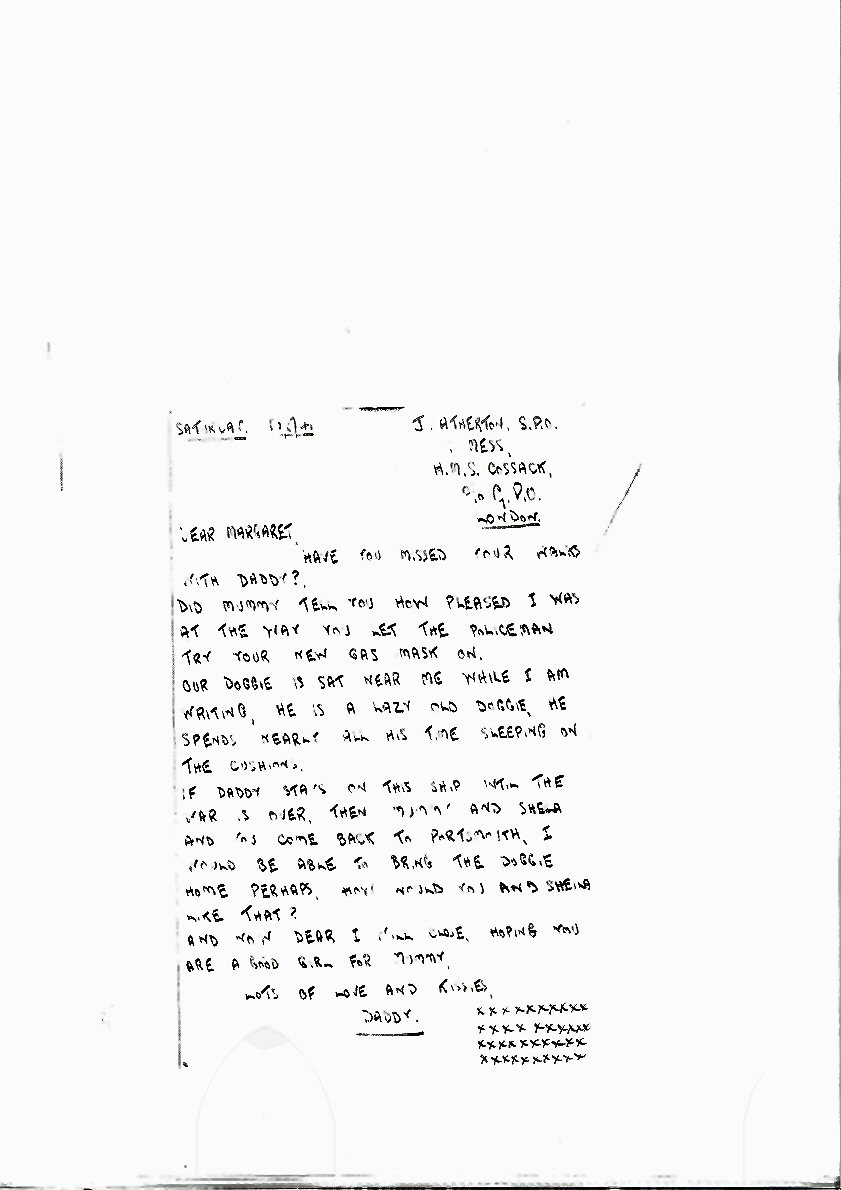 J. ATHERTON. S.P.O.
MESS,
H.M.S. COSSACK,
C/O G.P.O.
LONDON.
DEAR MARGARET,
HAVE YOU MISSED YOUR WALKS
WITH DADDY?.
DID MUMMY TELL YOU HOW PLEASED I WAS
AT THE WAY YOU LET THE POLICEMAN
TRY YOUR NEW GAS MASK ON.
OUR DOGGIE IS SAT NEAR ME WHILE I AM
WRITING, HE IS A LAZY OLD DOGGIE, HE
SPENDS NEARLY ALL HIS TIME SLEEPING ON
THE CUSHIONS.
IF DADDY STAYS ON THIS SHIP UNTIL THE
WAR IS OVER, THEN MUMMY AND SHEILA
AND YOU COME BACK TO PORTSMOUTH, I
WOULD BE ABLE TO BRING THE DOGGIE
HOME PERHAPS, HOW WOULD YOU AND SHEILA
LIKE THAT?
AND NOW DEAR I WILL CLOSE, HOPING YOU
ARE A GOOD GIRL FOR MUMMY,
LOTS OF LOVE AND KISSIES,
DADDY.
X X X X X X X X X X
X X X X X X X X X X
X X X X X X X X X X
X X X X X X X X X X